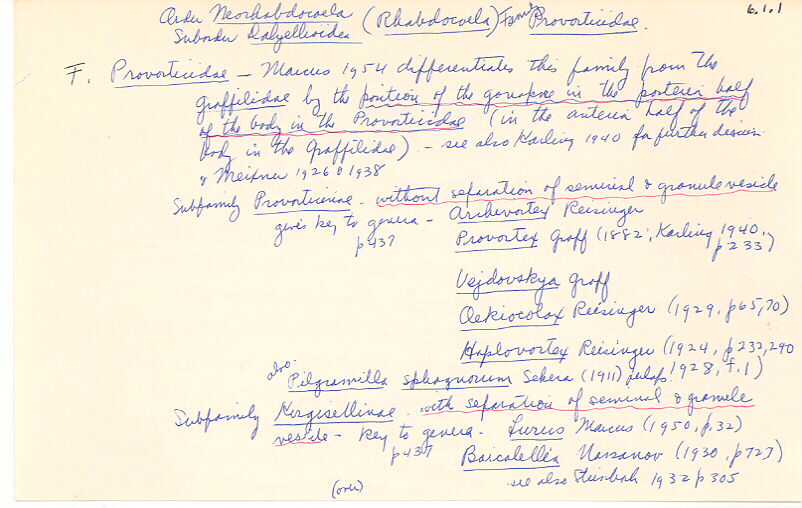 6.1.1
Order Neorhabdocoela (Rhabdocoela) Family Provorticidae.
Suborder Dalyellioidea
F. Provorticidae - Marcus 1954 differentiates this family from the
Graffilidae by the position of the gonopore in the posterior half
of the body in the Provorticidae (in the anterior half of the
body in the Graffilidae) - see also Karling 1940 for further discussion
& Meixner 1926 & 1938
Subfamily Provorticinae - without separation of seminal & granule vesicle
gives key to genera - Archivortex Reisinger
p 437 Provortex Graff (1882; Karling 1940, p 233)
Vejdovskya Graff
Oekiocolax Reisinger (1929, p65, 70)
Haplovortex Reisinger (1924, p 232, 290
1928, f. 1)
also - Pilgramilla sphagnorum Sekera (1911) perhaps.
Subfamily Kirgisellinae - with separation of seminal & granule
vesicle - key to genera - Lurus Marcus (1950, p. 32)
p 437 Baicalellia Nassanov (1930, p 727)
see also Steinböck 1932 p 305
(over)